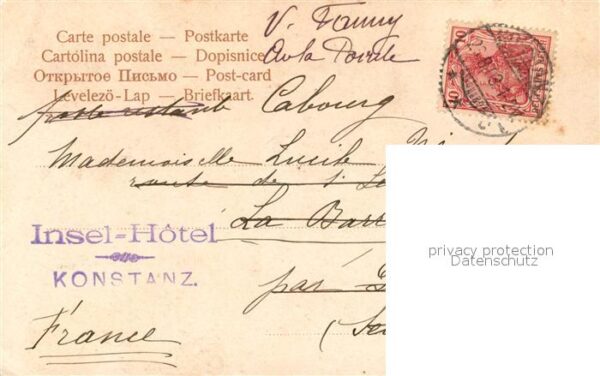 V. Fanny
Carte postale — Postkarte
Cartolina postale — Dopisnice
Открытое Письмо — Post-card
Levelező-Lap — Briefkaart.
10 10
poste restante Cabourg
Mademoiselle Lucile
route de l'
La Barr
Insel-Hôtel
KONSTANZ.
par
(Se
France
privacy protection
Datenschutz